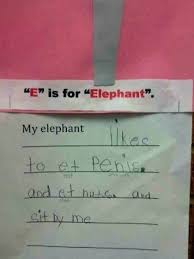 "E" is for "Elephant".
My elephant likes
to et Penis.
and et nuts. and
sit by me